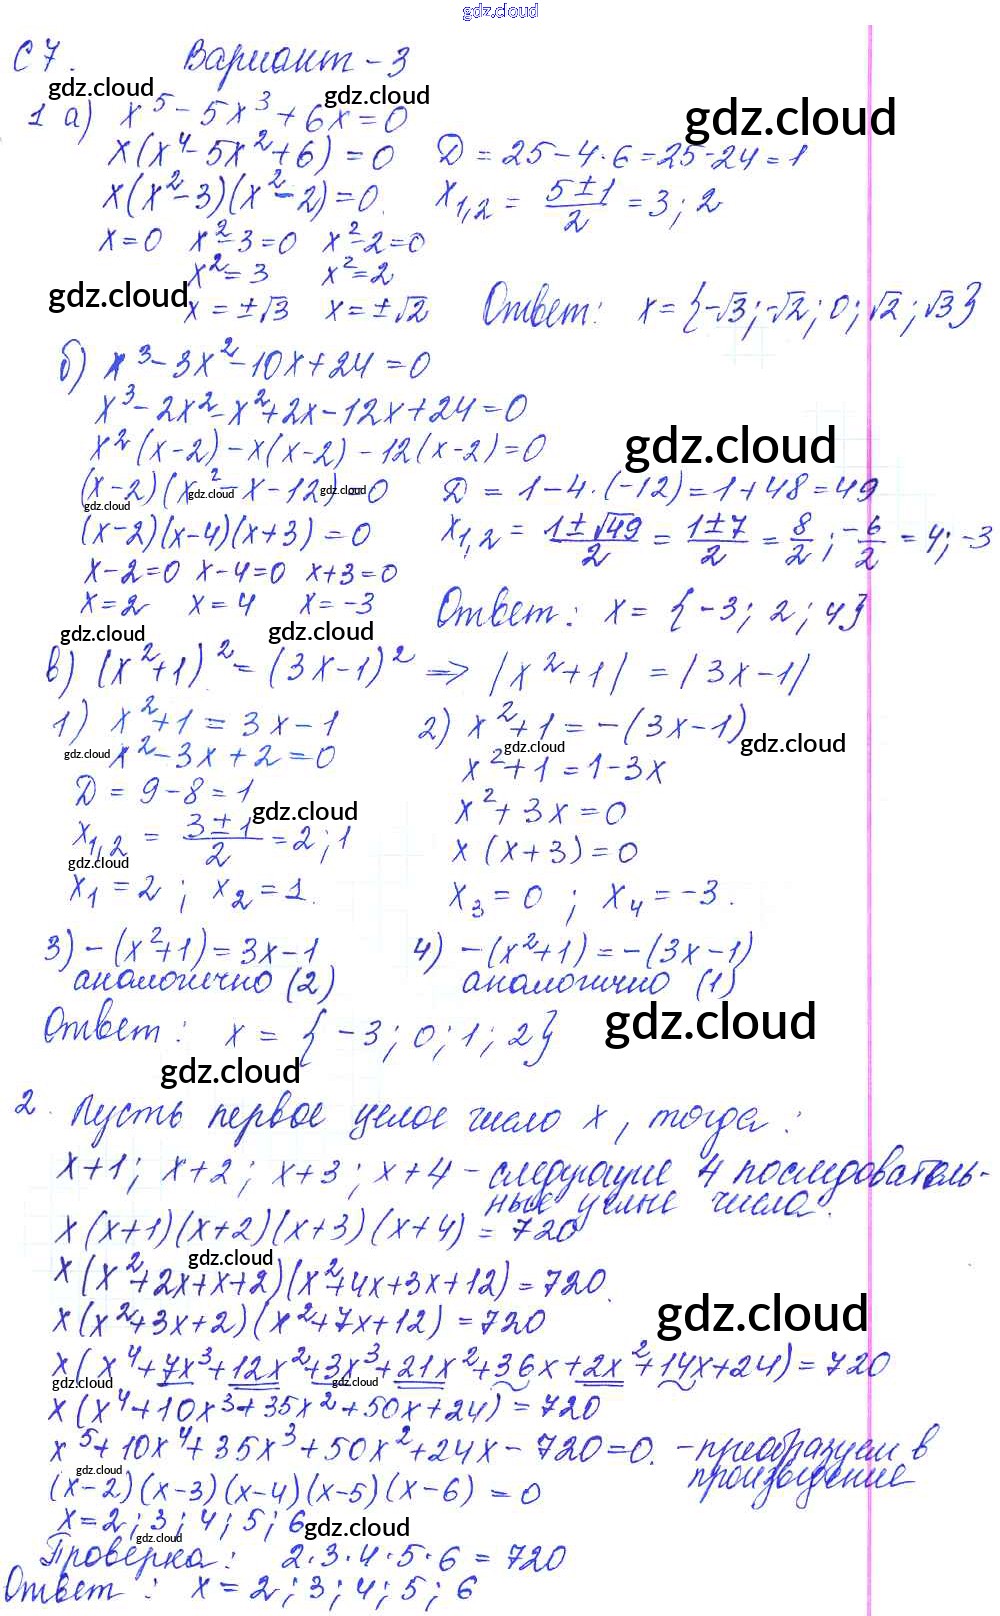 gdz.cloud
С 7. Вариант - 3
gdz.cloud gdz.cloud gdz.cloud
1 а) x⁵ - 5x³ + 6x = 0
x(x⁴ - 5x² + 6) = 0 Д = 25 - 4·6 = 25 - 24 = 1
x(x² - 3)(x² - 2) = 0. x₁,₂ = (5±1)/2 = 3; 2
x = 0 x² - 3 = 0 x² - 2 = 0
x² = 3 x² = 2
gdz.cloud
x = ±√3 x = ±√2 Ответ: x = {-√3; -√2; 0; √2; √3}
б) x³ - 3x² - 10x + 24 = 0
x³ - 2x² - x² + 2x - 12x + 24 = 0
x²(x-2) - x(x-2) - 12(x-2) = 0
gdz.cloud
(x-2)(x² - x - 12) = 0 Д = 1 - 4·(-12) = 1 + 48 = 49
gdz.cloud gdz.cloud gdz.cloud
(x-2)(x-4)(x+3) = 0 x₁,₂ = (1±√49)/2 = (1±7)/2 = 8/2; -6/2 = 4; -3
x-2=0 x-4=0 x+3=0
x=2 x=4 x=-3 Ответ: x = {-3; 2; 4}
gdz.cloud gdz.cloud
в) (x²+1)² = (3x-1)² => |x²+1| = |3x-1|
1) x²+1 = 3x-1 2) x²+1 = -(3x-1)
gdz.cloud gdz.cloud gdz.cloud
x² - 3x + 2 = 0 x²+1 = 1-3x
Д = 9-8 = 1 x² + 3x = 0
gdz.cloud
x₁,₂ = (3±1)/2 = 2; 1 x(x+3) = 0
gdz.cloud
x₁ = 2; x₂ = 1. x₃ = 0; x₄ = -3.
3) -(x²+1) = 3x-1 4) -(x²+1) = -(3x-1)
аналогично (2) аналогично (1)
Ответ: x = {-3; 0; 1; 2}
gdz.cloud
gdz.cloud
2. Пусть первое целое число x, тогда:
x+1; x+2; x+3; x+4 - следующие 4 последователь-
ные целые числа.
x(x+1)(x+2)(x+3)(x+4) = 720
gdz.cloud
x(x²+2x+x+2)(x²+4x+3x+12) = 720.
x(x²+3x+2)(x²+7x+12) = 720
gdz.cloud
x(x⁴+7x³+12x²+3x³+21x²+36x+2x²+14x+24) = 720
gdz.cloud gdz.cloud
x(x⁴+10x³+35x²+50x+24) = 720
x⁵+10x⁴+35x³+50x²+24x-720=0. - преобразуем в
произведение
gdz.cloud
(x-2)(x-3)(x-4)(x-5)(x-6) = 0
x = 2; 3; 4; 5; 6
gdz.cloud gdz.cloud
Проверка: 2·3·4·5·6 = 720
Ответ: x = 2; 3; 4; 5; 6